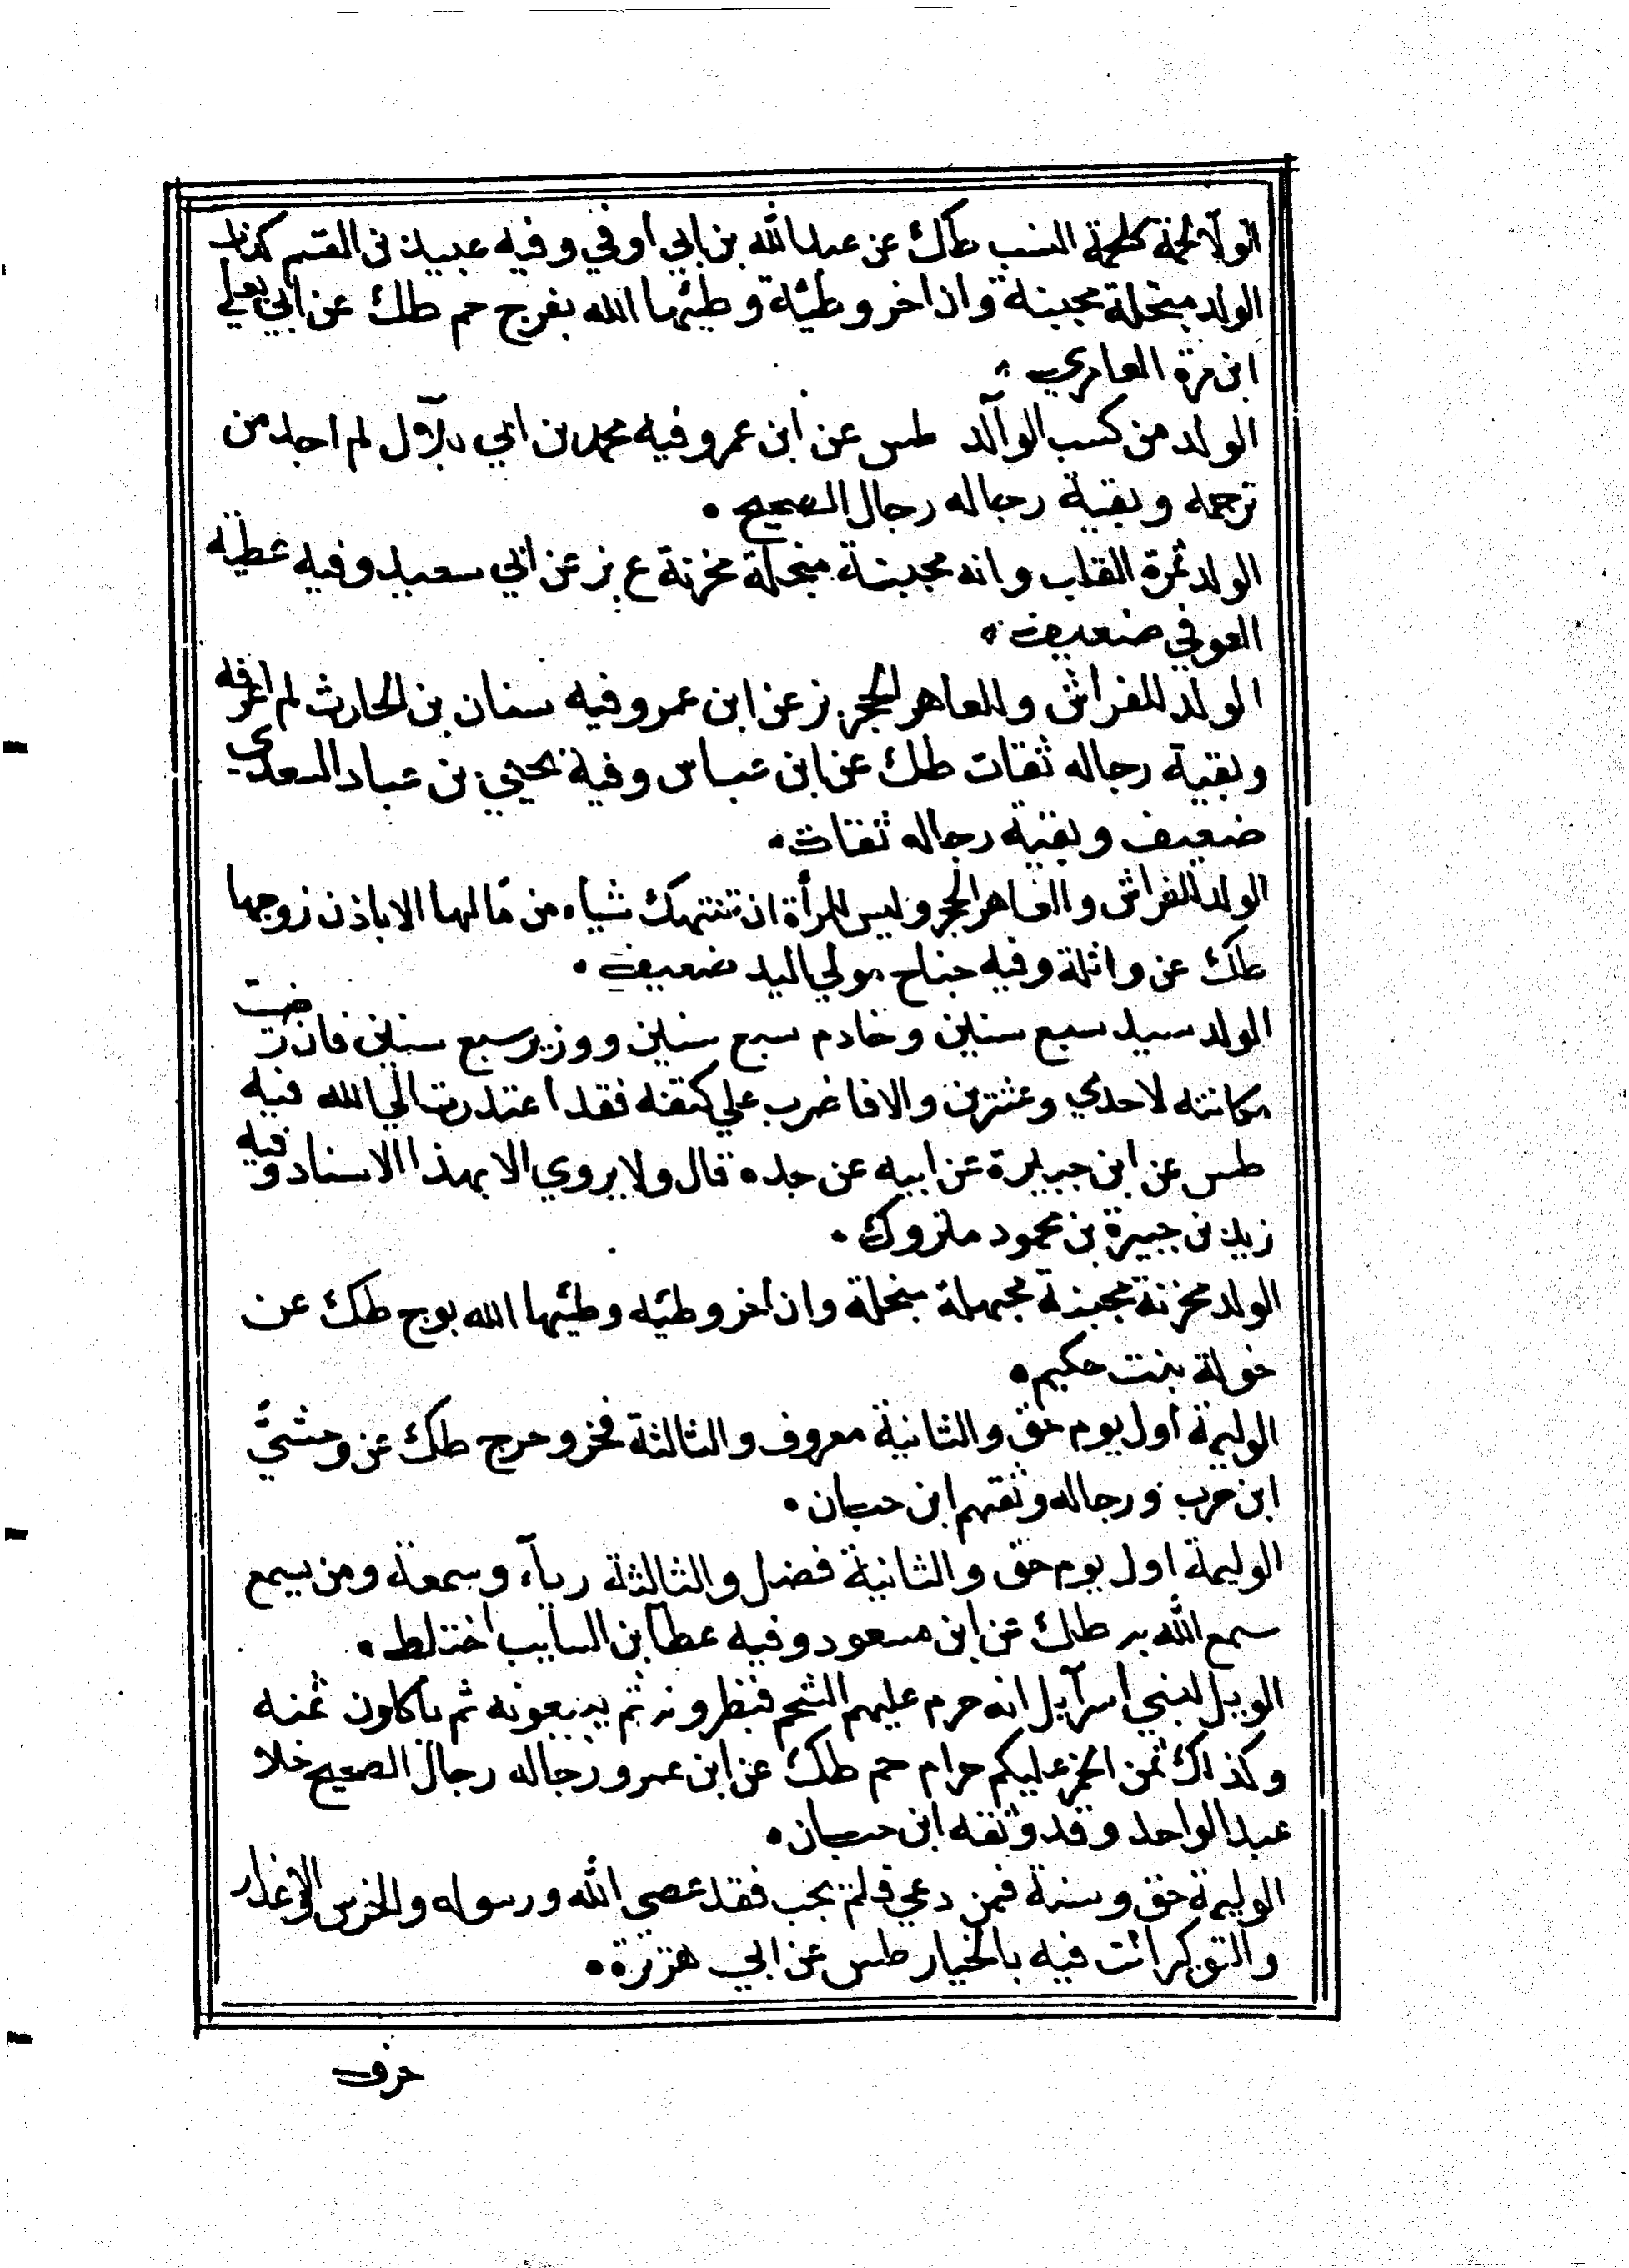 الولآ لحمة كلحمة النسب طك عن عبد الله بن ابي اوفي وفيه عبيد بن القسم كذاب
الولد مبخلة مجبنة وان اخر وطئة وطئها الله بفرج حم طك عن ابي يعلي
ابن مرة العامري
الولد من كسب الوآلد طس عن ابن عمر وفيه محمد بن ابي بلآل لم اجد من
ترجمه وبقية رجاله رجال الصحيح
الولد ثمرة القلب وانه مجبنة مبخلة مخزنة ع بز عن ابي سعيد وفيه عطيه
العوفي ضعيف
الولد للفراش وللعاهر الحجر ز عن ابن عمر وفيه سنان بن الحارث لم اعرفه
وبقية رجاله ثقات طك عن ابن عباس وفية يحيي بن عباد السعدي
ضعيف وبقية رجاله ثقات
الولد للفراش والعاهر الحجر وليس للمرأة ان تنتهك شياء من مالها الا باذن زوجها
طك عن واثلة وفيه جناح مولي اليد ضعيف
الولد سيد سبع سنين وخادم سبع سنين ووزير سبع سنين فان رضت
مكانته لاحدي وعشرين والا فاضرب علي كتفه فقد اعتذرت الي الله فيه
طس عن ابن جبيرة عن ابيه عن جده قال ولا يروي الا بهذا الاسناد وفيه
زيد بن جبيرة بن محمود متروك
الولد مخزنة مجبنة مجهلة مبخلة وان اخر وطئه وطئها الله بوج طك عن
خولة بنت حكيم
الوليمة اول يوم حق والثانية معروف والثالثة فخر وحرج طك عن وحشيّ
ابن حرب ورجاله وثقهم ابن حبان
الوليمة اول يوم حق والثانية فضل والثالثة ريآء وسمعة ومن يسمع
سمع الله به طك عن ابن مسعود وفيه عطا بن السايب اختلط
الويل لبني اسرآيل انه حرم عليهم الشحم ثم يبيعونه ثم ياكلون ثمنه
وكذلك ثمن الخمر عليكم حرام حم طك عن ابن عمر ورجاله رجال الصحيح خلا
عبد الواحد وقد وثقه ابن حبان
الوليمة حق وسنة فمن دعي فلم يجب فقد عصي الله ورسوله والخرس والاعذار
والتوكير انت فيه بالخيار طس عن ابي هريرة
حرف